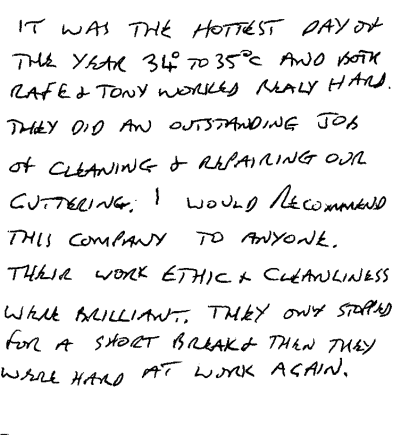 IT WAS THE HOTTEST DAY OF
THE YEAR 34° TO 35°C AND BOTH
RAFE & TONY WORKED REALY HARD.
THEY DID AN OUTSTANDING JOB
OF CLEANING & REPAIRING OUR
GUTTERING. I WOULD RECOMMEND
THIS COMPANY TO ANYONE.
THEIR WORK ETHIC & CLEANLINESS
WERE BRILLIANT. THEY ONY STOPPED
FOR A SHORT BREAK & THEN THEY
WERE HARD AT WORK AGAIN.